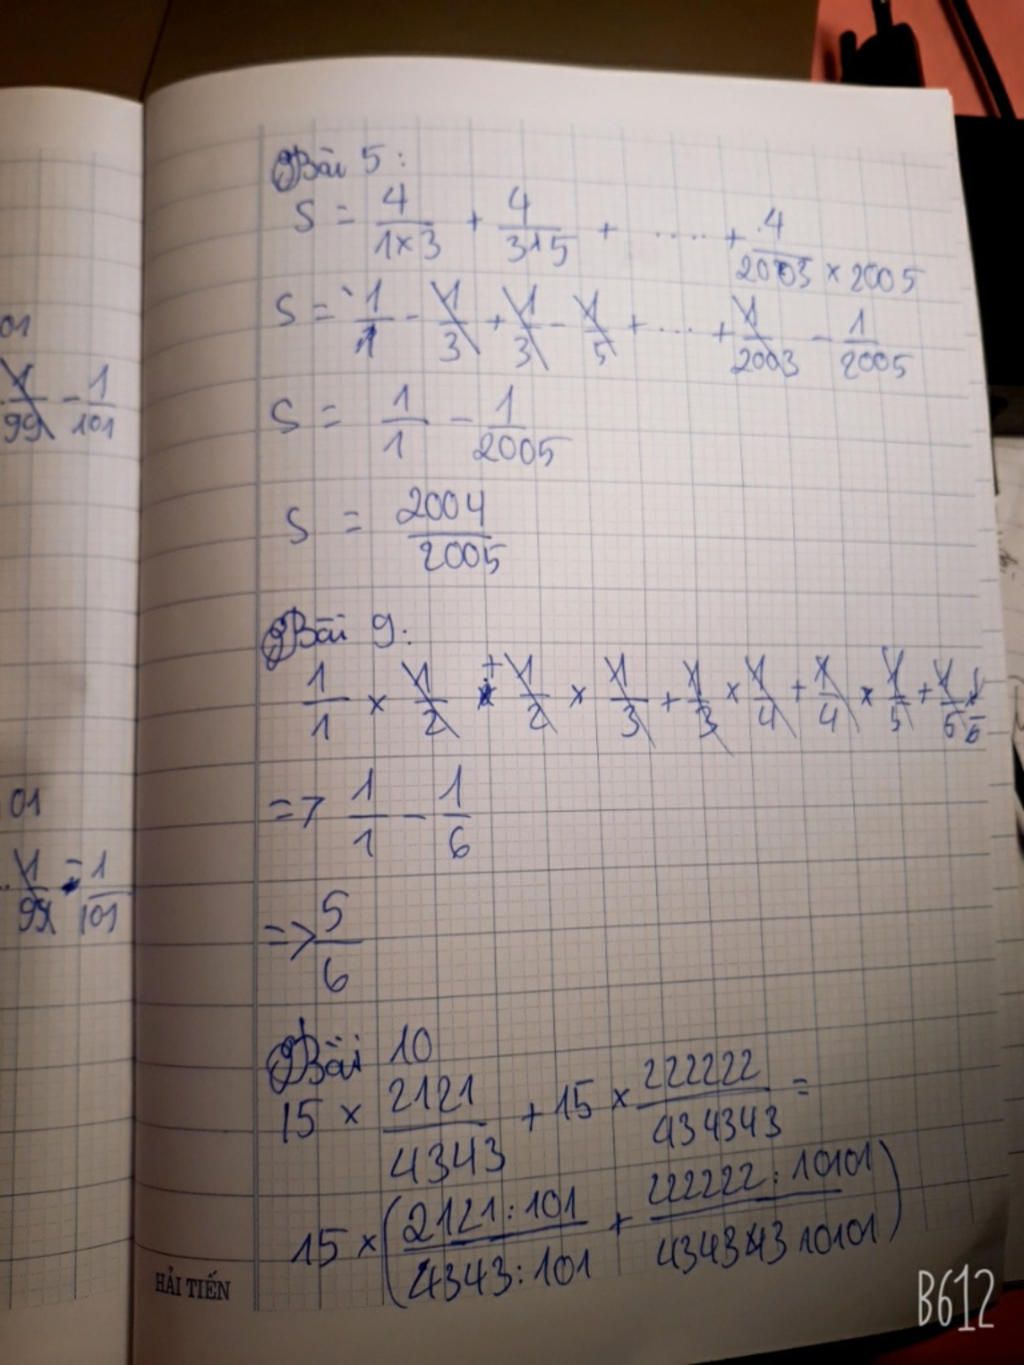 01
1/99 - 1/101
01
1/99 - 1/101
Bài 5:
S = 4/1×3 + 4/3×5 + .... + 4/2003 × 2005
S = 1/1 - 1/3 + 1/3 - 1/5 + ... + 1/2003 - 1/2005
S = 1/1 - 1/2005
S = 2004/2005
Bài 9:
1/1 × 1/2 + 1/2 × 1/3 + 1/3 × 1/4 + 1/4 × 1/5 + 1/6
=> 1/1 - 1/6
=> 5/6
Bài 10
15 × 2121/4343 + 15 × 222222/434343 =
15 × (2121:101/4343:101 + 222222:10101/434343 10101)
HẢI TIẾN
B612